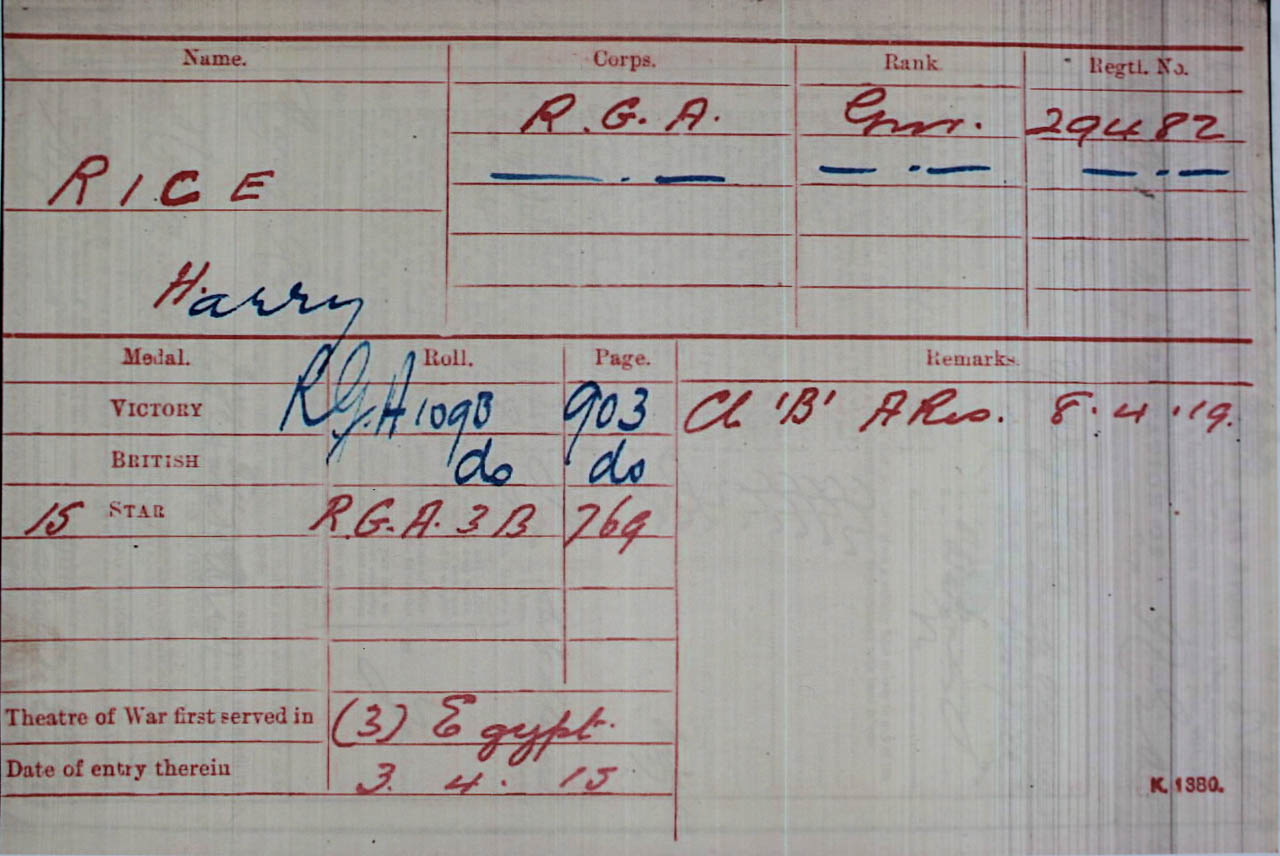 Name. Corps. Rank Regtl. No.
R.G.A. Gnr. 29482
RICE — . — — . — — . —
Harry
Medal. Roll. Page. Remarks.
VICTORY RGA109B 903 Cl 'B' A Res. 8.4.19.
BRITISH do do
15 STAR R.G.A. 3 B 769
Theatre of War first served in (3) Egypt.
Date of entry therein 3. 4. 15
K. 1380.